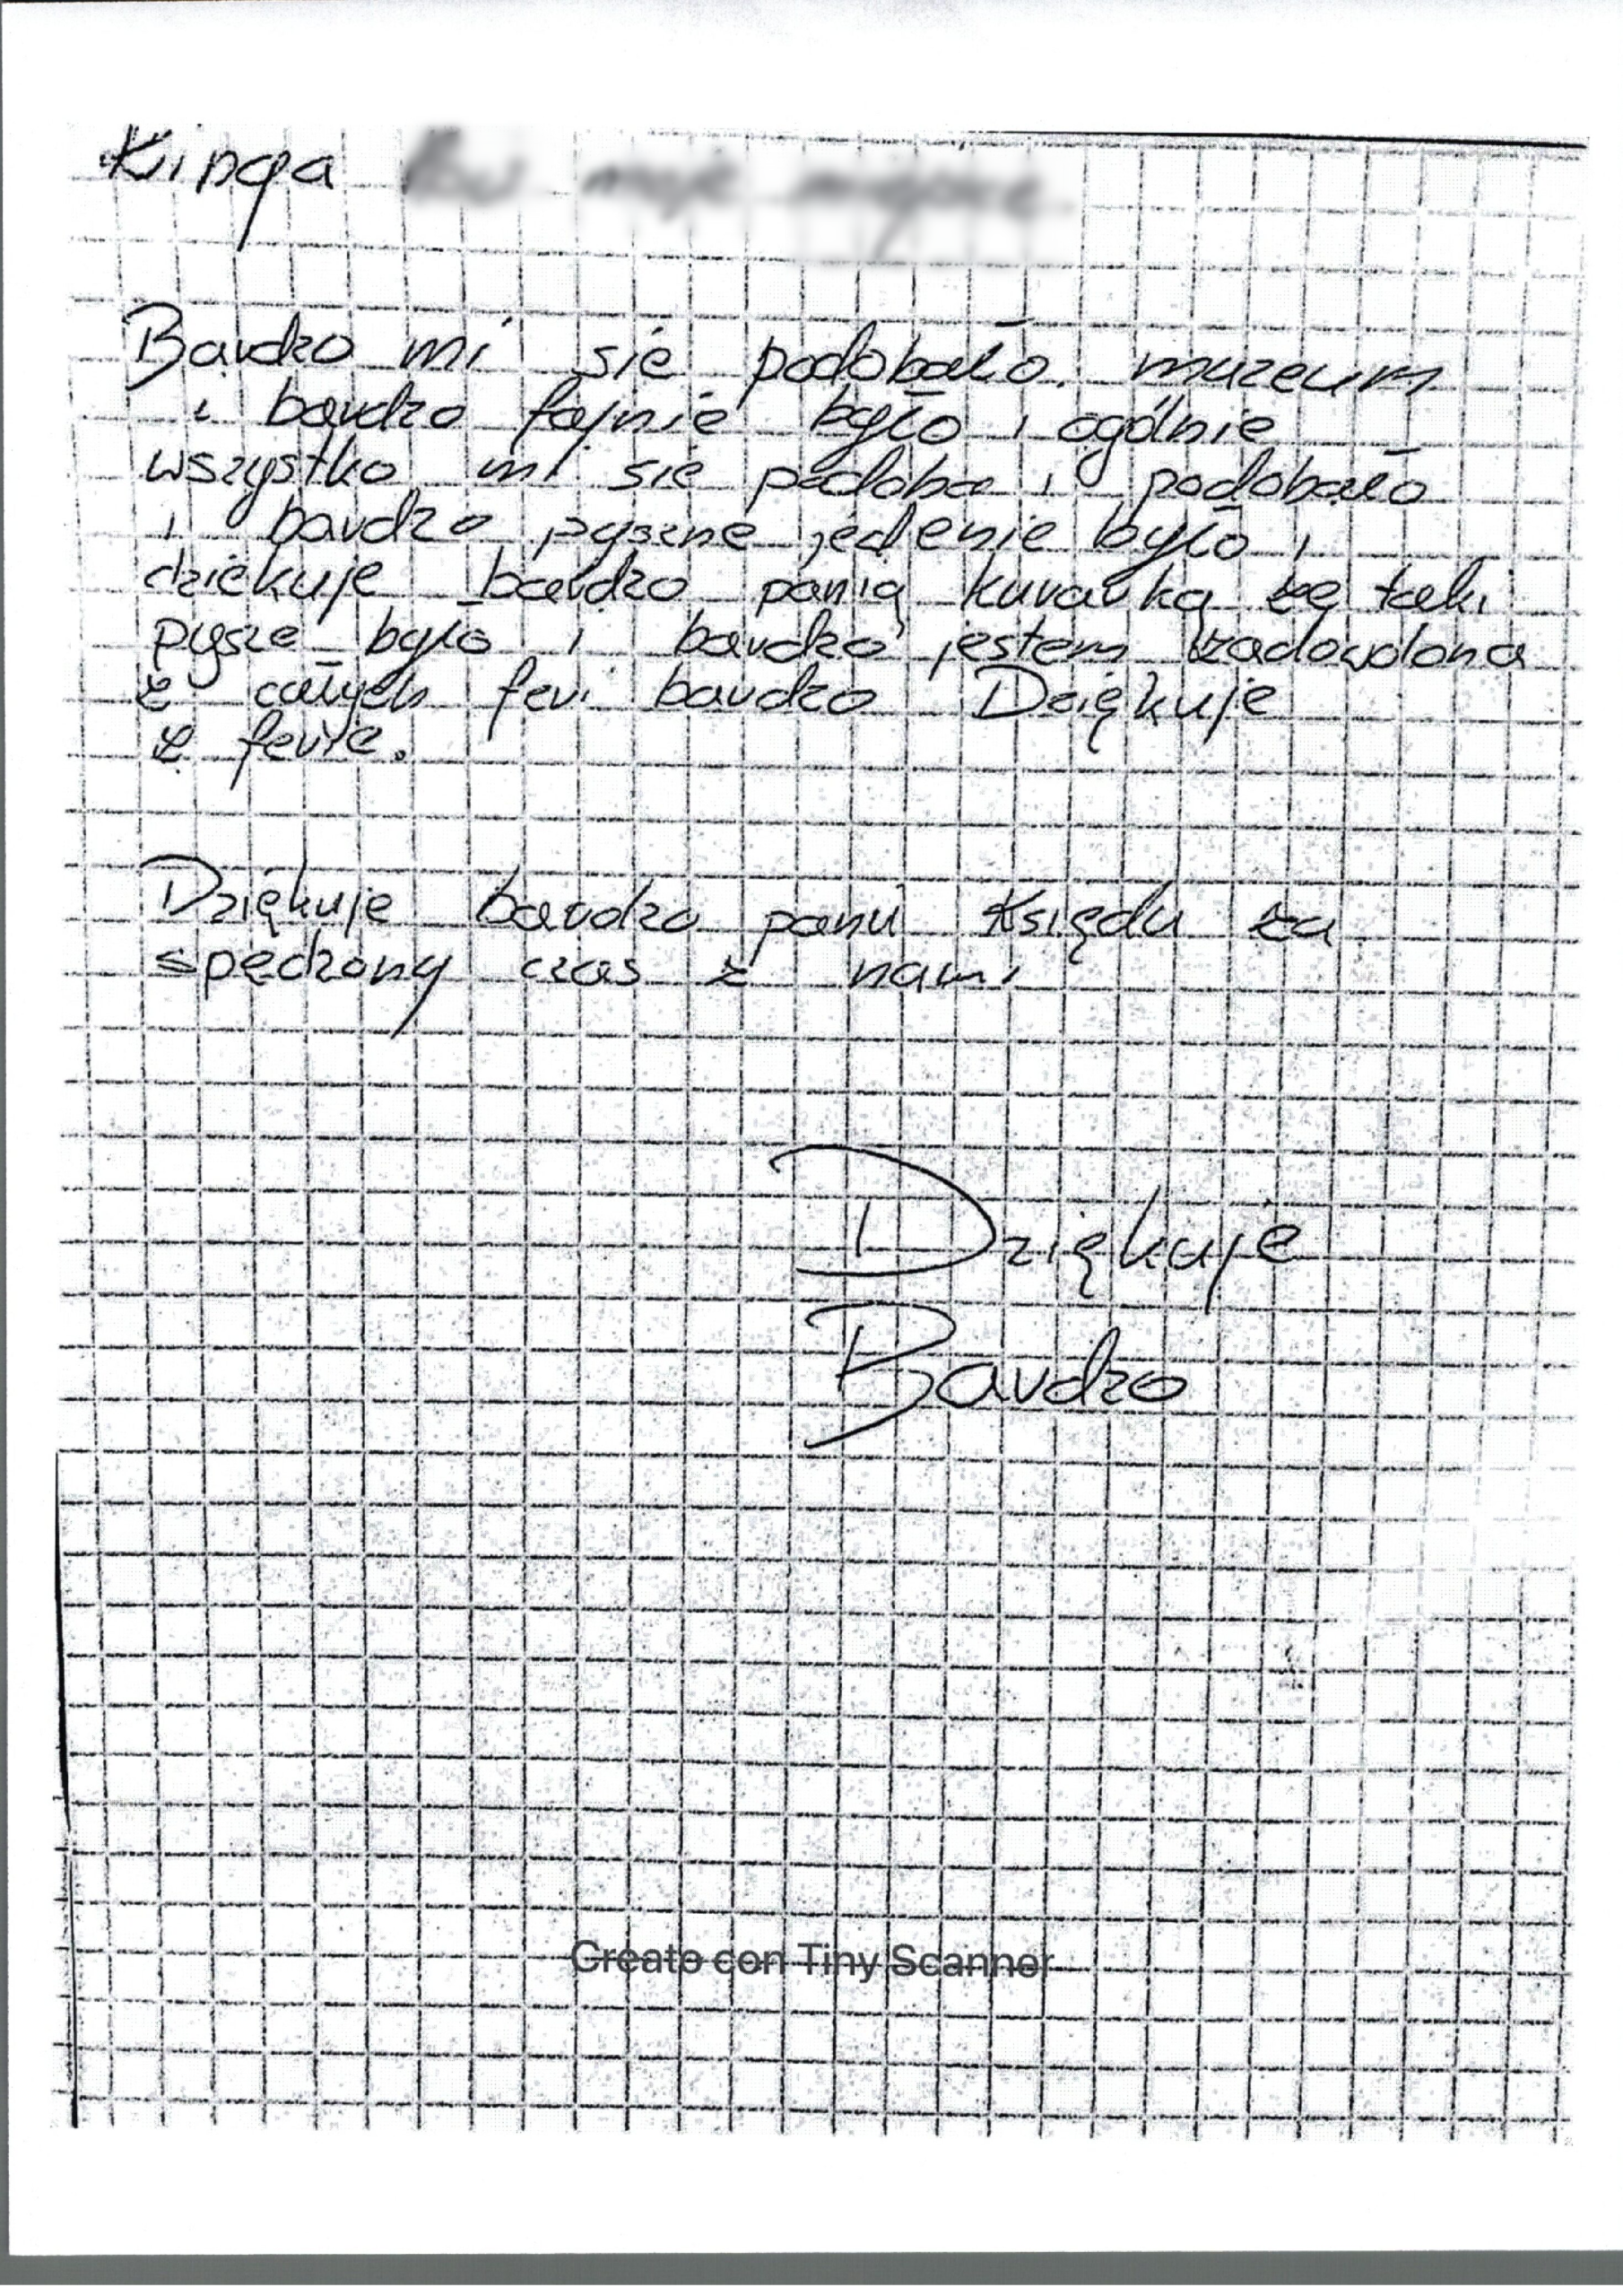 Kinga
Bardzo mi sie podobało muzeum
i bardzo fajnie było i ogólnie
wszystko mi sie podoba i podobało
i bardzo pyszne jedenie było i
dziekuje bardzo panią kurarką że taki
pysze było i bardzo jestem zadowolona
z całych feri bardzo Dziękuje
z ferie.
Dziękuje bardzo panu Księdu za
spędzony czas z nami
Dziękuje
Bardzo
Creato con Tiny Scanner